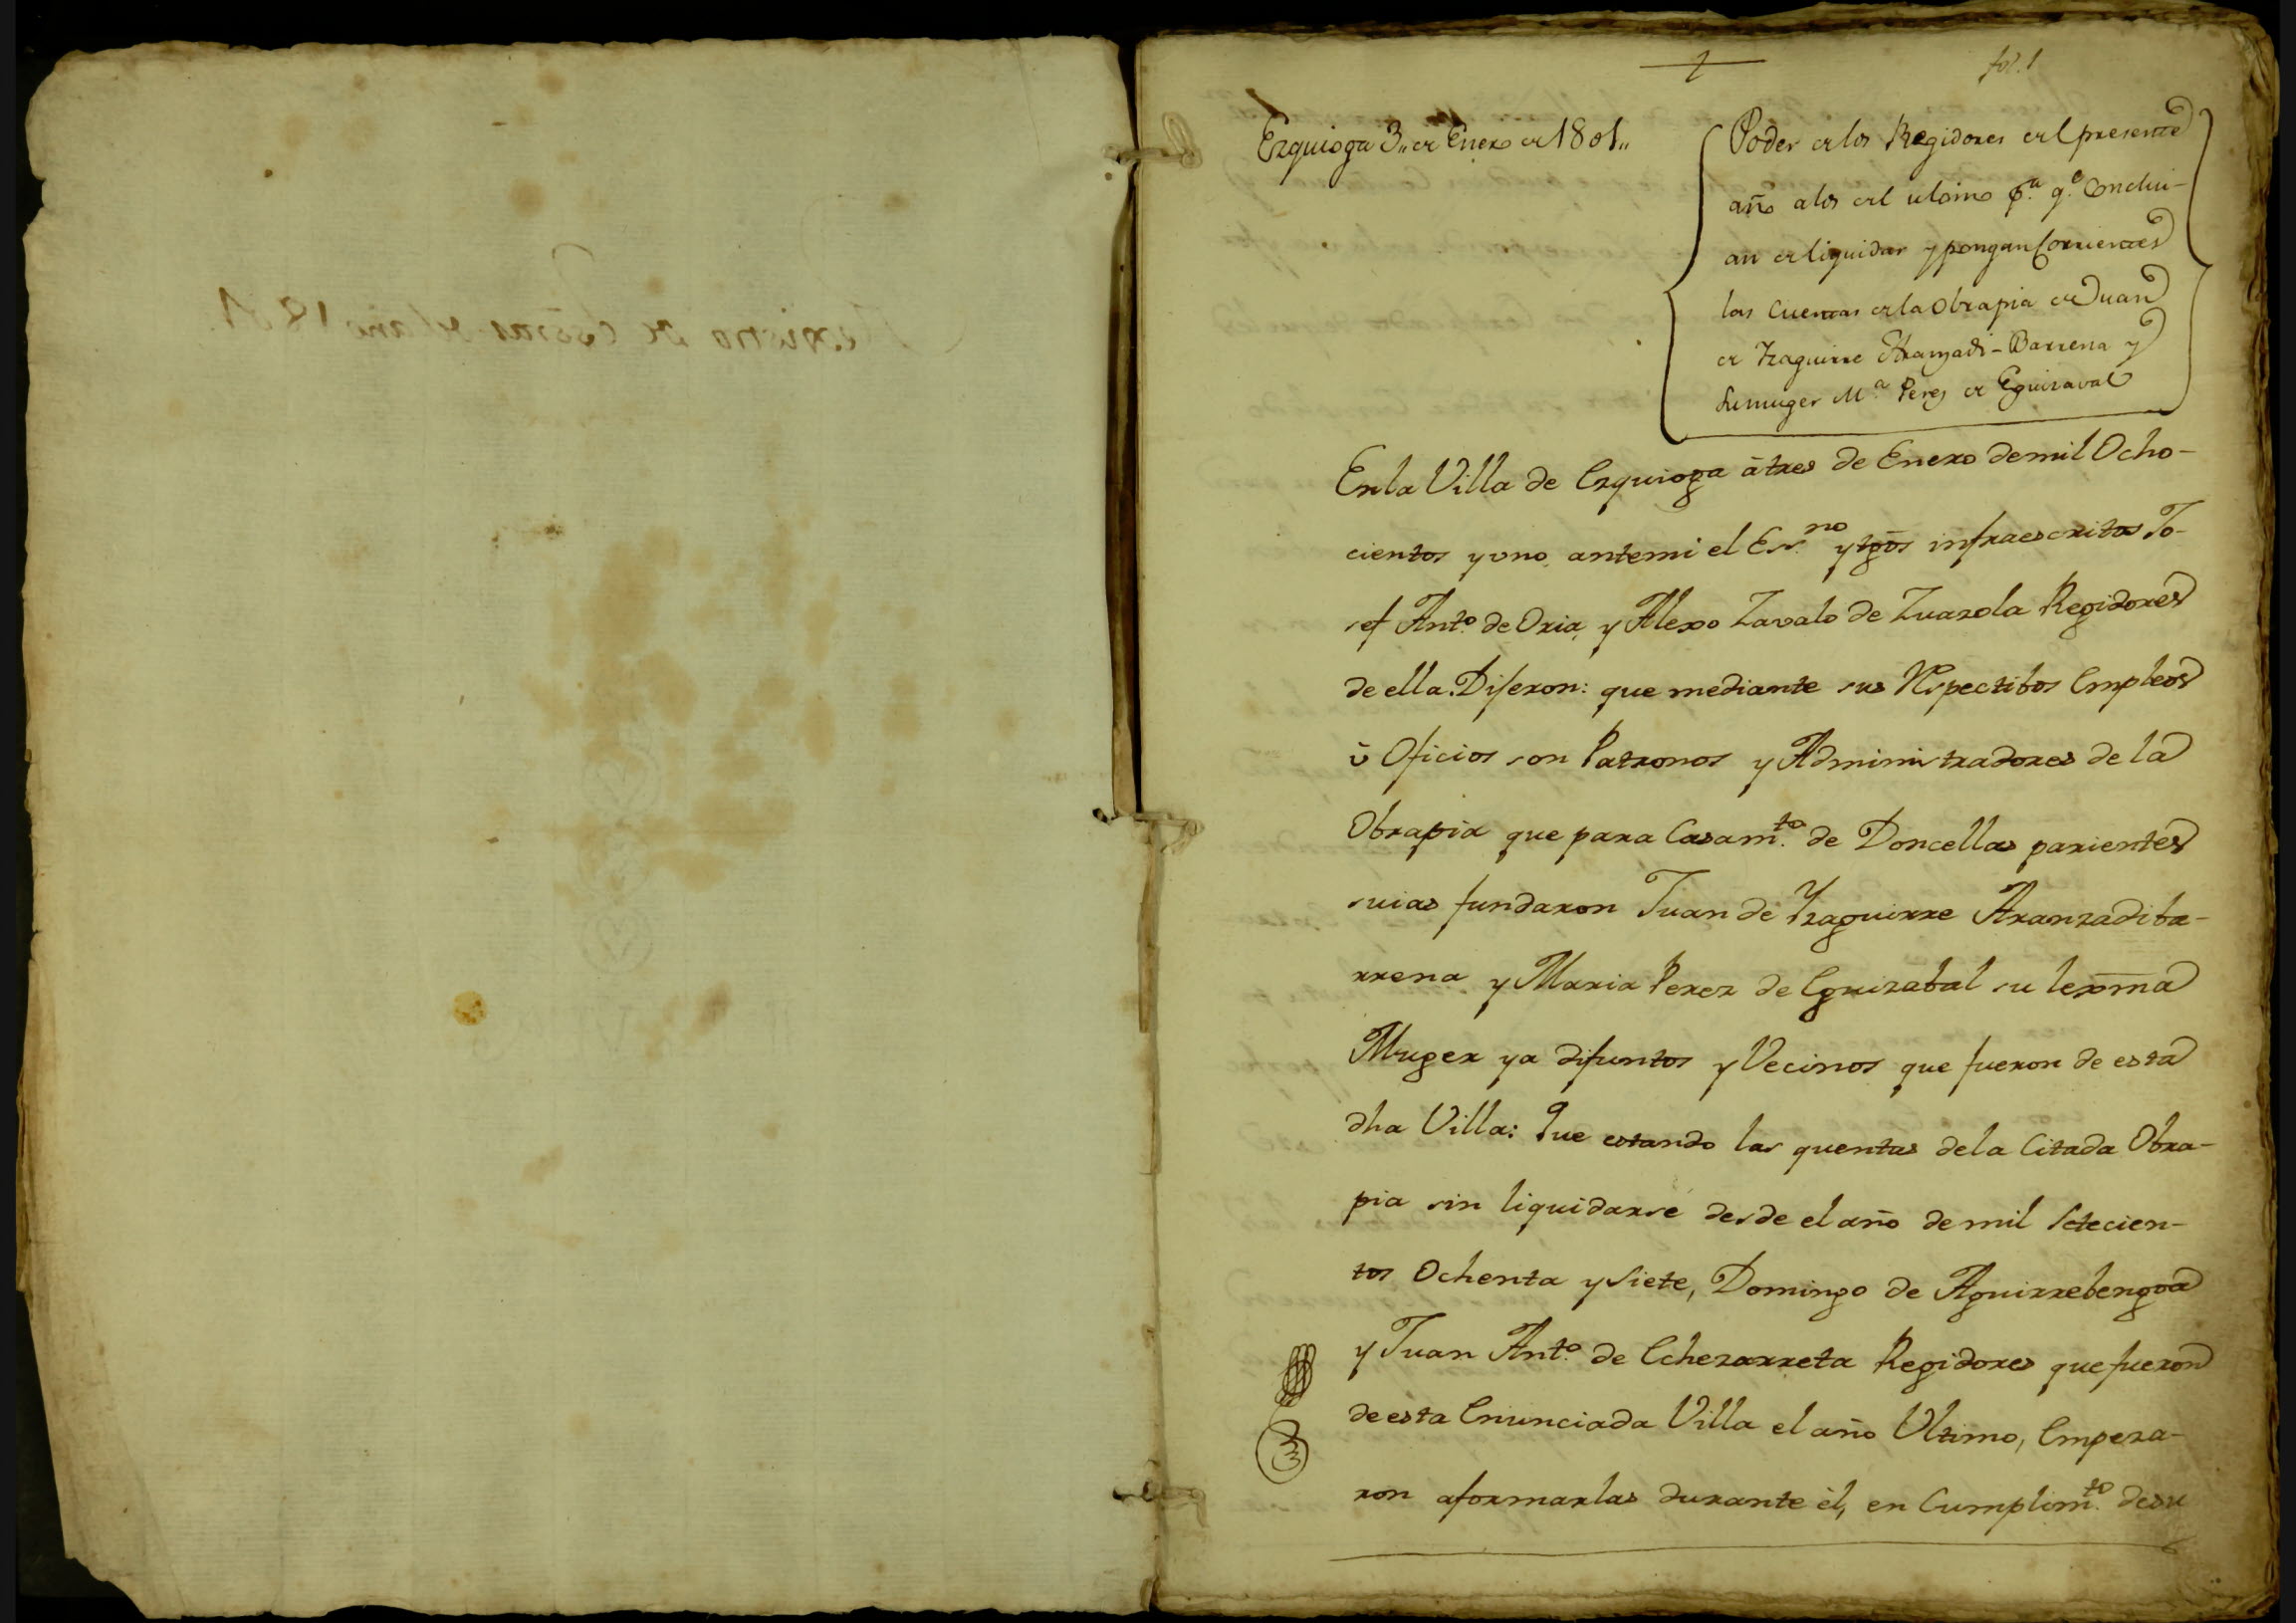 fol. 1
Ezquioga 3,, de Enero de 1801,,
Poder de los Regidores del presente
año a los del ultimo p.ª q.e Conclui-
an de liquidar y pongan Corrientes
las Cuentas de la Obrapia de Juan
de Yzaguirre Aranzadi-Barrena y
su muger M.ª Perez de Eguizaval
En la Villa de Ezquioga â tres de Enero de mil Ocho-
cientos y uno, ante mi el Ess.no y tgõs infraescritos Jo-
sef Ant.o de Oria, y Alexo Zavalo de Zuazola Regidores
de ella. Dijeron: que mediante sus Respectibos Empleos
ù Oficios son Patronos y Administradores de la
Obrapia que para Casam.to de Doncellas parientes
suias fundaron Juan de Yzaguirre Aranzadiba-
rrena y Maria Perez de Eguizabal su lexma
Muger ya difuntos y Vecinos que fueron de esta
dha Villa: Que estando las quentas de la Citada Obra-
pia sin liquidarse desde el año de mil Setecien-
tos Ochenta y Siete, Domingo de Aguirrebengoa
y Juan Ant.o de Echezarreta Regidores que fueron
de esta Enunciada Villa el año Ultimo, Empeza-
ron a formarlas durante èl, en Cumplim.to de su